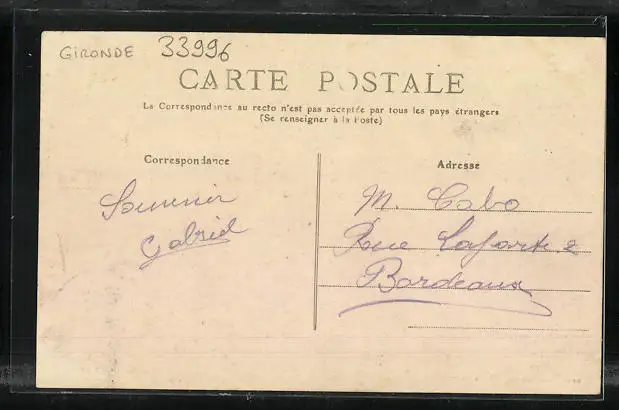 GIRONDE 33996
CARTE POSTALE
La Correspondance au recto n'est pas acceptée par tous les pays étrangers
(Se renseigner à la Poste)
Correspondance
Souvenir
Gabriel
Adresse
M. Cabo
Rue Laforte 2
Bordeaux